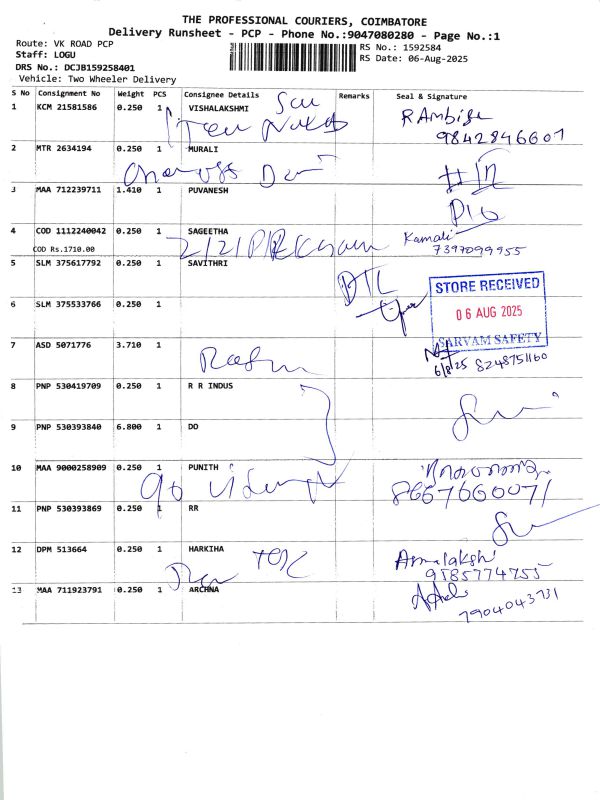 THE PROFESSIONAL COURIERS, COIMBATORE
Delivery Runsheet - PCP - Phone No.:9047080280 - Page No.:1
Route: VK ROAD PCP
Staff: LOGU
DRS No.: DCJB159258401
Vehicle: Two Wheeler Delivery
RS No.: 1592584
RS Date: 06-Aug-2025
S No Consignment No Weight PCS Consignee Details Remarks Seal & Signature
1 KCM 21581586 0.250 1 VISHALAKSHMI
9842846601
2 MTR 2634194 0.250 1 MURALI
3 MAA 712239711 1.410 1 PUVANESH
4 COD 1112240042 0.250 1 SAGEETHA Kamali
COD Rs.1710.00 7397099955
5 SLM 375617792 0.250 1 SAVITHRI
STORE RECEIVED
06 AUG 2025
SARVAM SAFETY
6 SLM 375533766 0.250 1
7 ASD 5071776 3.710 1
6/8/25 8248751160
8 PNP 530419709 0.250 1 R R INDUS
9 PNP 530393840 6.800 1 DO
10 MAA 9000258909 0.250 1 PUNITH
8667660071
11 PNP 530393869 0.250 1 RR
12 DPM 513664 0.250 1 HARKIHA
9785774755
13 MAA 711923791 0.250 1 ARCHNA
7904043731